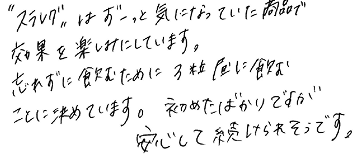 "スラレグ"はずーっと気になっていた商品で
効果を楽しみにしています。
忘れずに飲むために3粒昼に飲む
ことに決めています。初めたばかりですが
安心して続けられそうです。